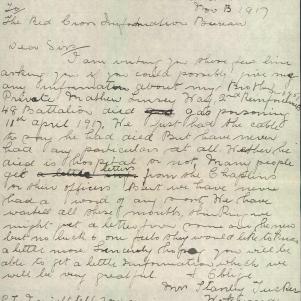 To Nov 13 1917
The Red Cross Information Bureau
Dear Sir,
I am writing you these few lines
asking you if you could possibly give me
any information about my Brother
Private Mather 2nd Reinforcements
48 Battalion died gas poisoning
11th April 1917 We just had the cable
to say he had died But have never
had any particulars at all. Whether he
died in hospital or not. Many people
get letters from the Chaplins
or their officers But we have never
had a word of any sort. We have
waited all these months thinking we
might get a letter from some one
but no luck & one feels they would like to know
a little more. Sincerely hope you will be
able to get a little information which we
will be very grateful & Oblige
Mrs Stanley Tucker